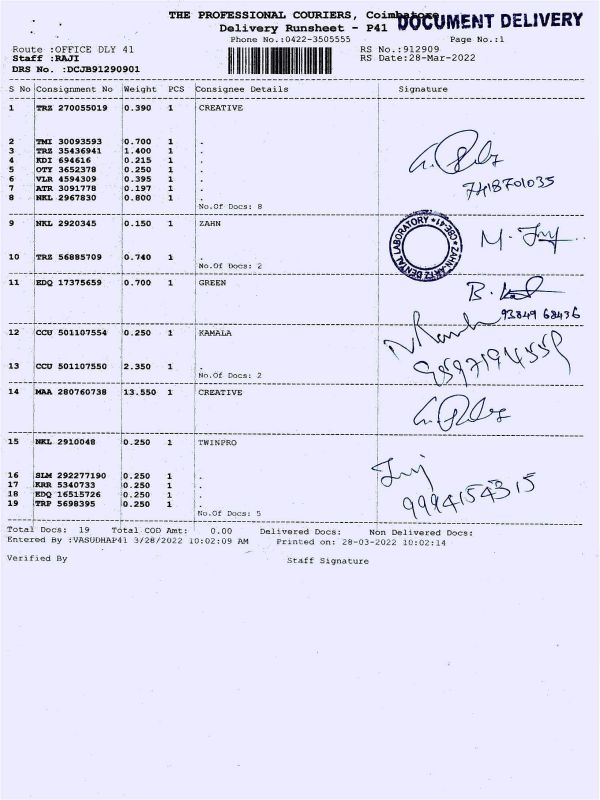 THE PROFESSIONAL COURIERS, Coimbatore
DOCUMENT DELIVERY
Delivery Runsheet - P41
Phone No.:0422-3505555 Page No.:1
Route :OFFICE DLY 41 RS No.:912909
Staff :RAJI RS Date:28-Mar-2022
DRS No. :DCJB91290901
S No Consignment No Weight PCS Consignee Details Signature
1 TRZ 270055019 0.390 1 CREATIVE
2 TMI 30093593 0.700 1 .
3 TRZ 35436941 1.400 1 .
4 KDI 694616 0.215 1 .
5 OTY 3652378 0.250 1 .
6 VLR 4594309 0.395 1 .
7 ATR 3091778 0.197 1 .
8 NKL 2967830 0.800 1 .
7418701035
No.Of Docs: 8
9 NKL 2920345 0.150 1 ZAHN
ZAHN ARTZ DENTAL LABORATORY * CBE-41 *
10 TRZ 56885709 0.740 1 .
No.Of Docs: 2
11 EDQ 17375659 0.700 1 GREEN
93849 68436
12 CCU 501107554 0.250 1 KAMALA
13 CCU 501107550 2.350 1 .
No.Of Docs: 2
14 MAA 280760738 13.550 1 CREATIVE
15 NKL 2910048 0.250 1 TWINPRO
16 SLM 292277190 0.250 1 .
17 KRR 5340733 0.250 1 .
18 EDQ 16515726 0.250 1 .
19 TRP 5698395 0.250 1 .
9994154315
No.Of Docs: 5
Total Docs: 19 Total COD Amt: 0.00 Delivered Docs: Non Delivered Docs:
Entered By :VASUDHAP41 3/28/2022 10:02:09 AM Printed on: 28-03-2022 10:02:14
Verified By Staff Signature